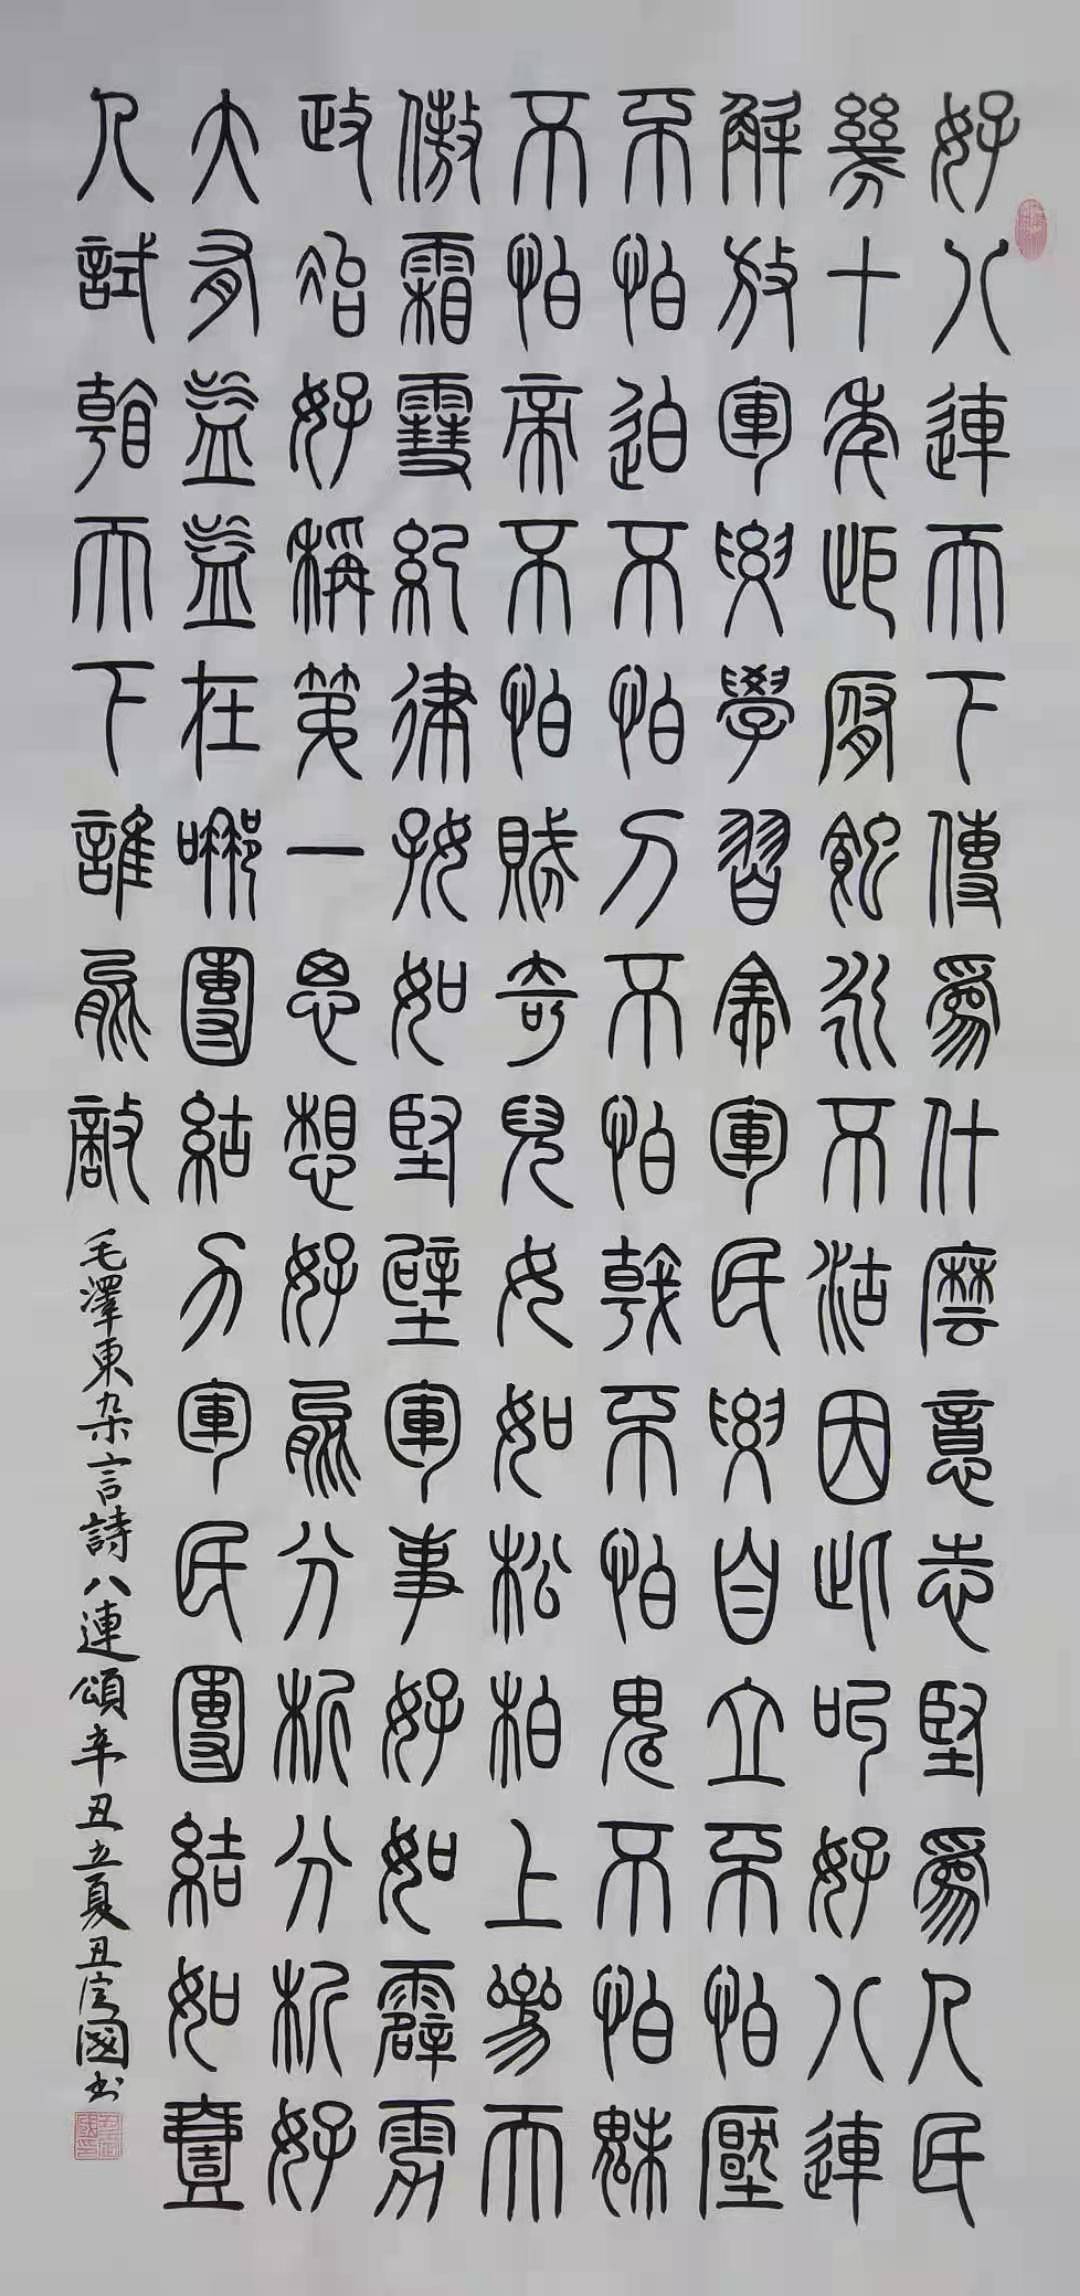 好八連天下傳爲什麼意志堅爲人民
幾十年拒腐蝕永不沾因此叫好八連
解放軍要學習全軍民要自立不怕壓
不怕迫不怕刀不怕戟不怕鬼不怕魅
不怕帝不怕賊奇兒女如松柏上參天
傲霜雪紀律好如堅壁軍事好如霹靂
政治好稱第一思想好能分析分析好
大有益益在哪團結力軍民團結如壹
人試看天下誰能敵
毛澤東杂言詩八連頌辛丑立夏丑定國书